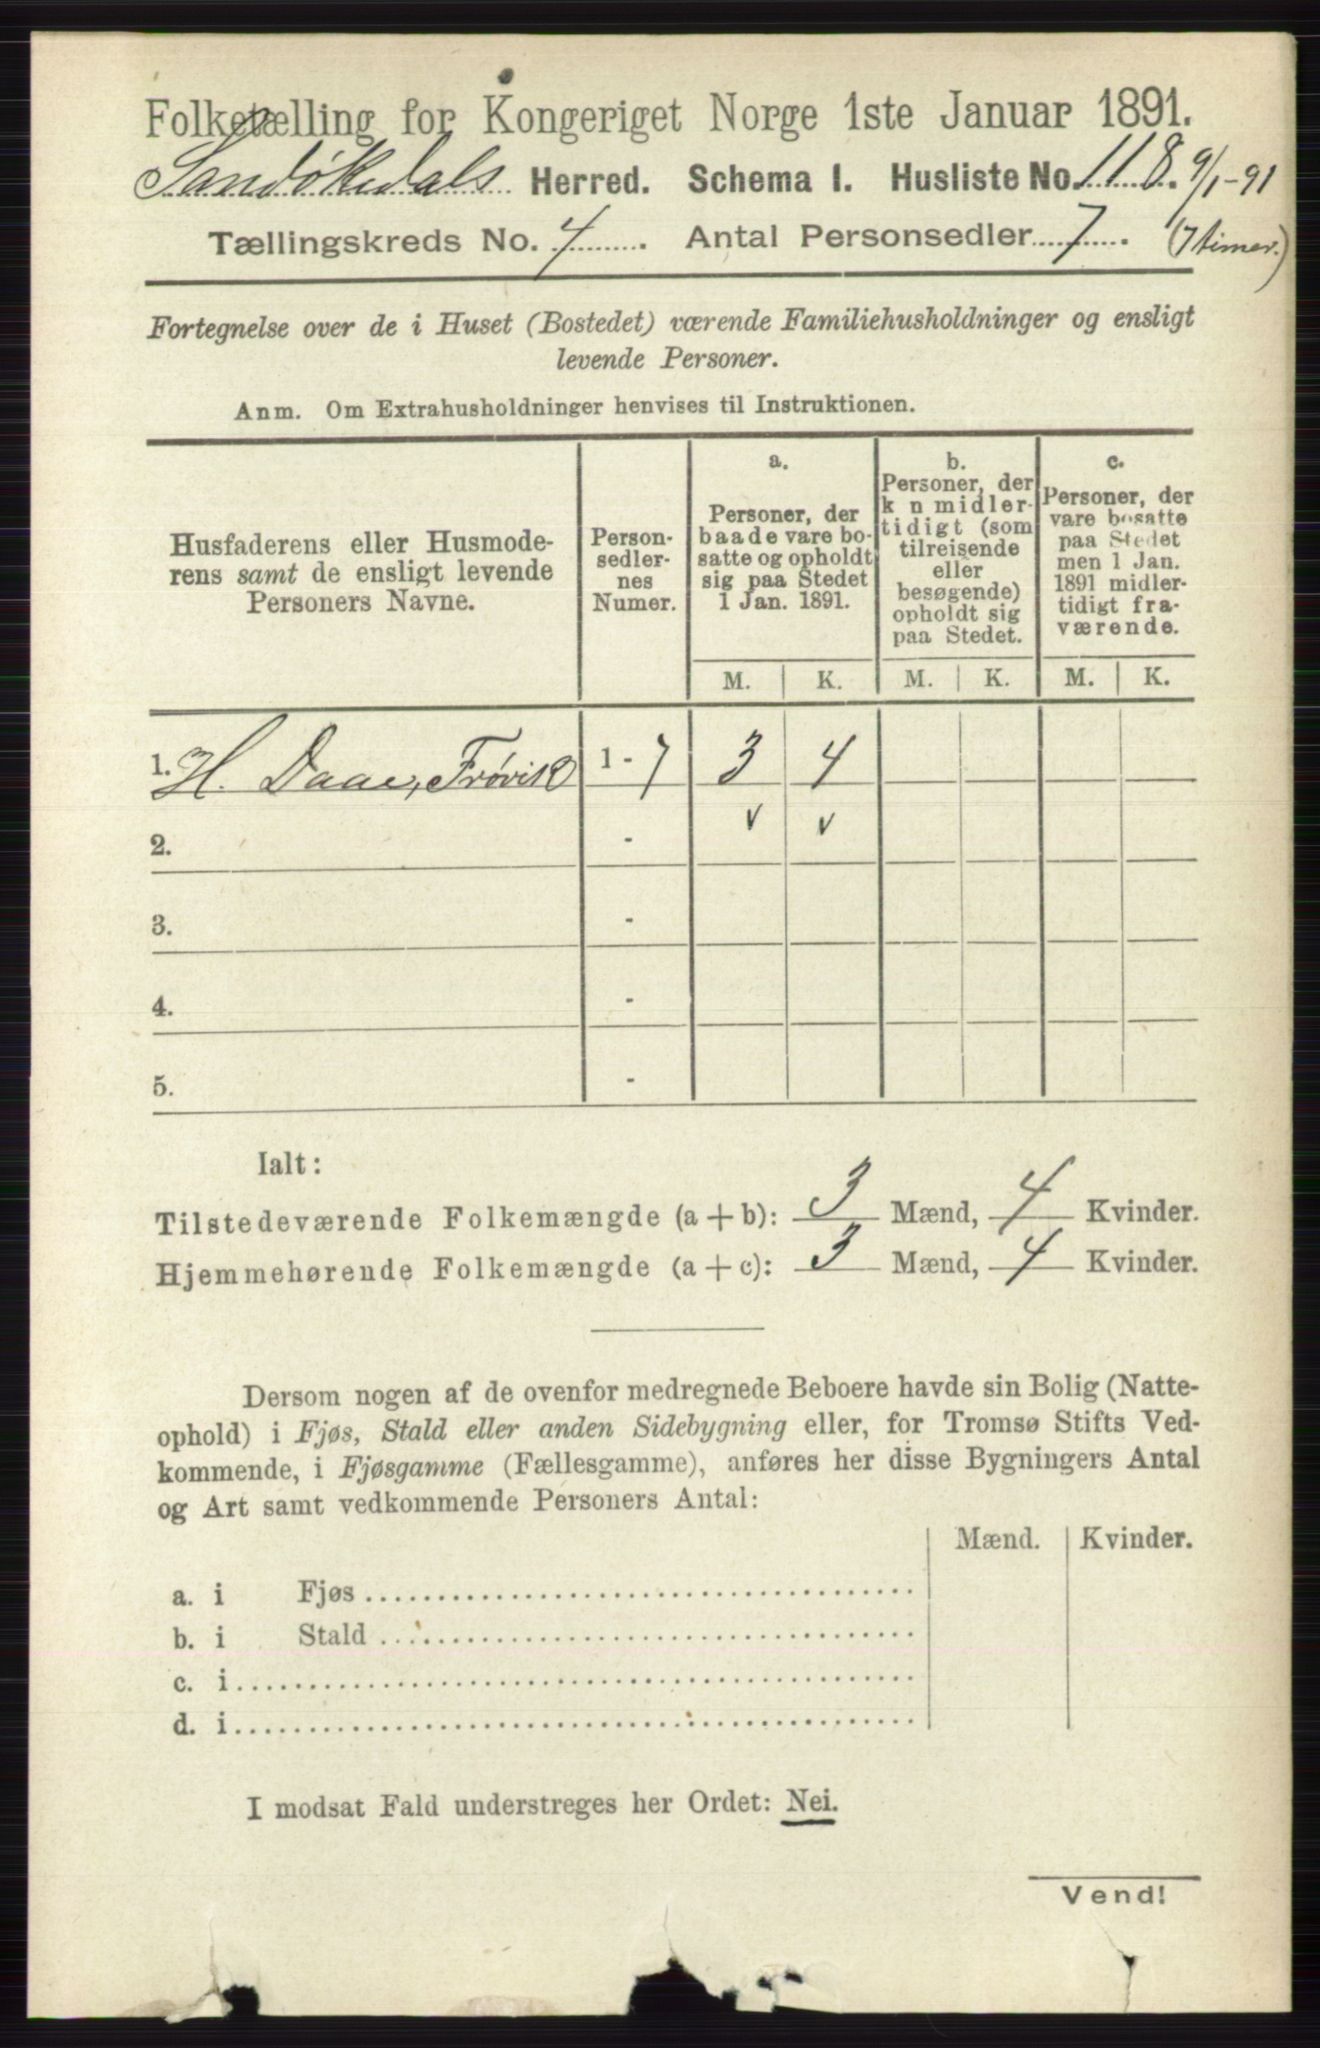 Folketælling for Kongeriget Norge 1ste Januar 1891.
Sandøkedals Herred. Schema I. Husliste No. 118. 9/1-91
Tællingskreds No. 4. Antal Personsedler 7. (7 timer.)
Fortegnelse over de i Huset (Bostedet) værende Familiehusholdninger og ensligt
levende Personer.
Anm. Om Extrahusholdninger henvises til Instruktionen.
Husfaderens eller Husmode-
rens samt de ensligt levende
Personers Navne.
Person-
sedler-
nes
Numer.
a.
Personer, der
baade vare bo-
satte og opholdt
sig paa Stedet
1 Jan. 1891.
b.
Personer, der
k n midler-
tidigt (som
tilreisende
eller
besøgende)
opholdt sig
paa Stedet.
c.
Personer, der
vare bosatte
paa Stedet
men 1 Jan.
1891 midler-
tidigt fra-
værende.
M. K. M. K. M. K.
1. H. Daae, Frøvik 1 - 7 3 4
v v
2. -
3. -
4. -
5. -
Ialt:
Tilstedeværende Folkemængde (a + b): 3 Mænd, 4 Kvinder.
Hjemmehørende Folkemængde (a + c): 3 Mænd, 4 Kvinder.
Dersom nogen af de ovenfor medregnede Beboere havde sin Bolig (Natte-
ophold) i Fjøs, Stald eller anden Sidebygning eller, for Tromsø Stifts Ved-
kommende, i Fjøsgamme (Fællesgamme), anføres her disse Bygningers Antal
og Art samt vedkommende Personers Antal:
Mænd. Kvinder.
a. i Fjøs
b. i Stald
c. i
d. i
I modsat Fald understreges her Ordet: Nei.
Vend!